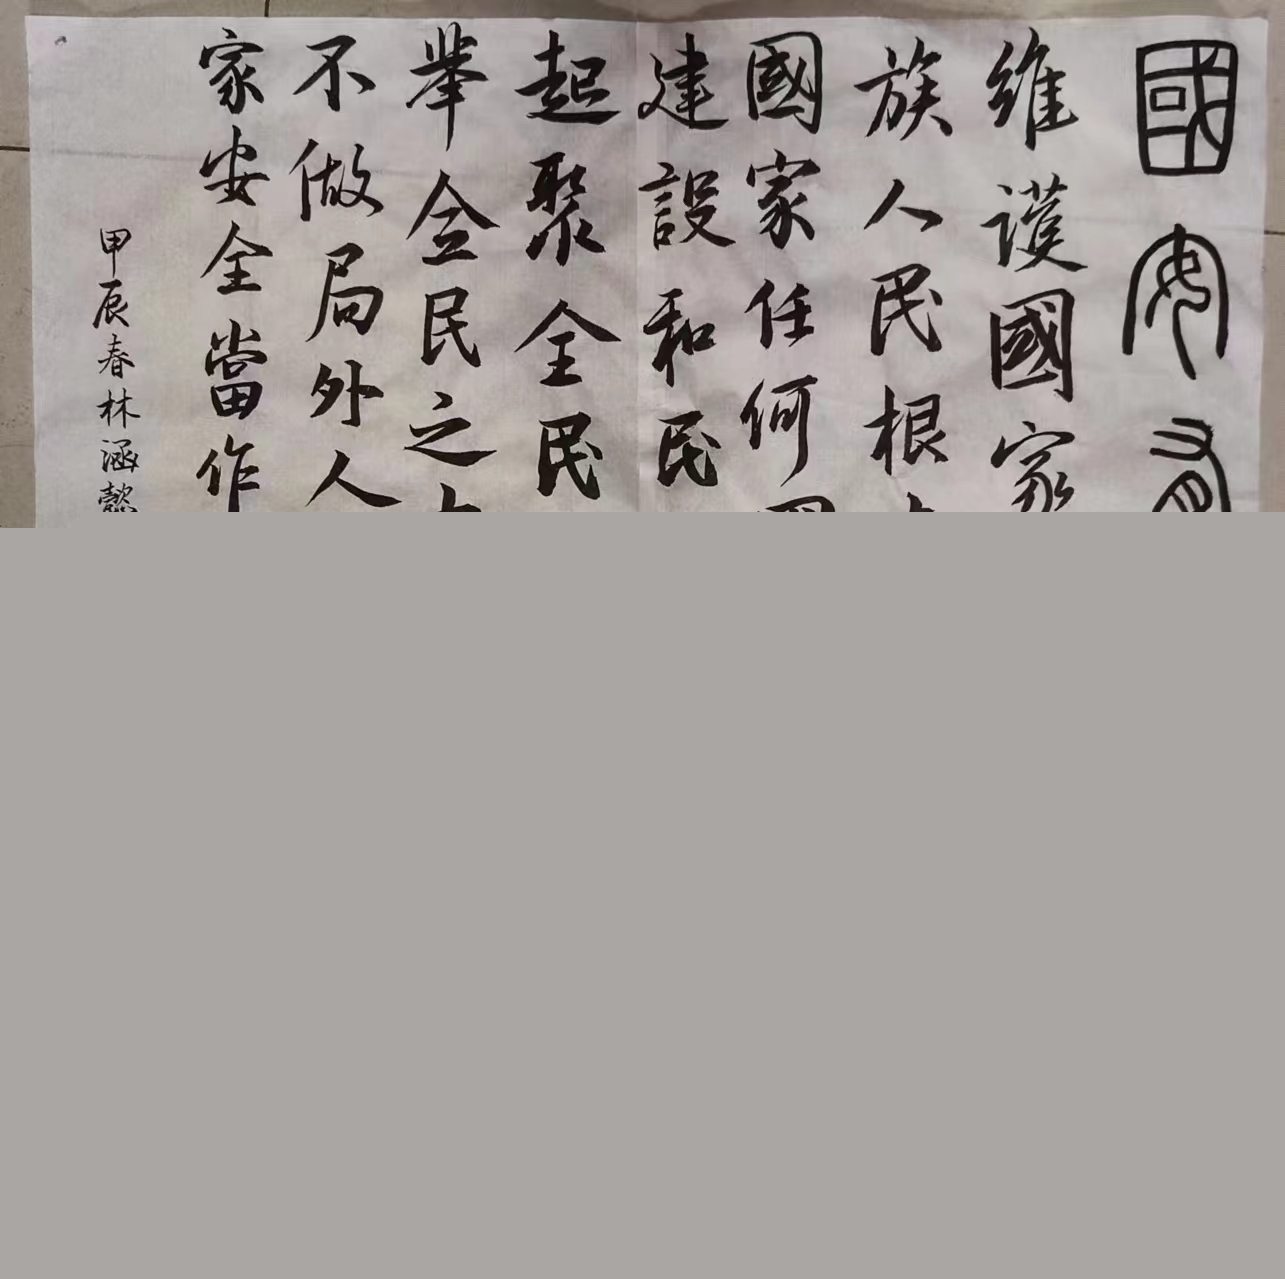 國安
維護國家
族人民根
國家任何
建設和民
起聚全民
舉全民之
不做局外人
家安全當作
甲辰春林涵懿